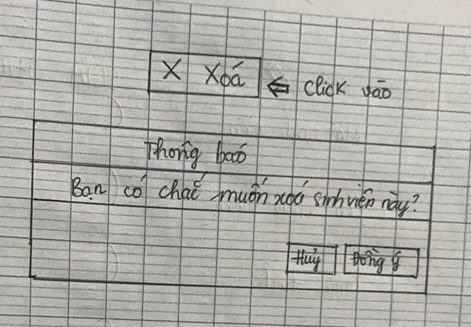 X Xoá ⇐ click vào
Thông báo
Bạn có chắc muốn xoá sinh viên này?
Huỷ Đồng ý